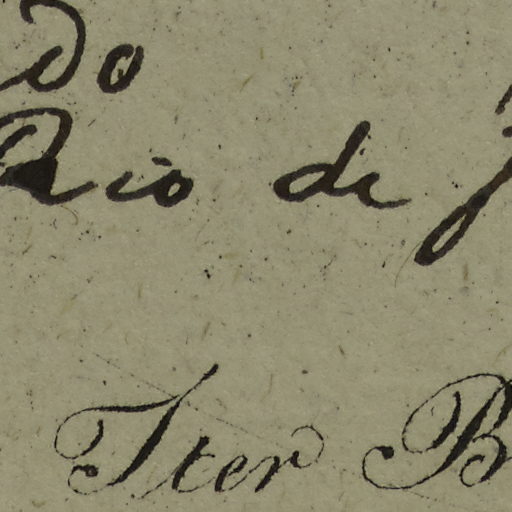 Do
Rio de J
Iter B